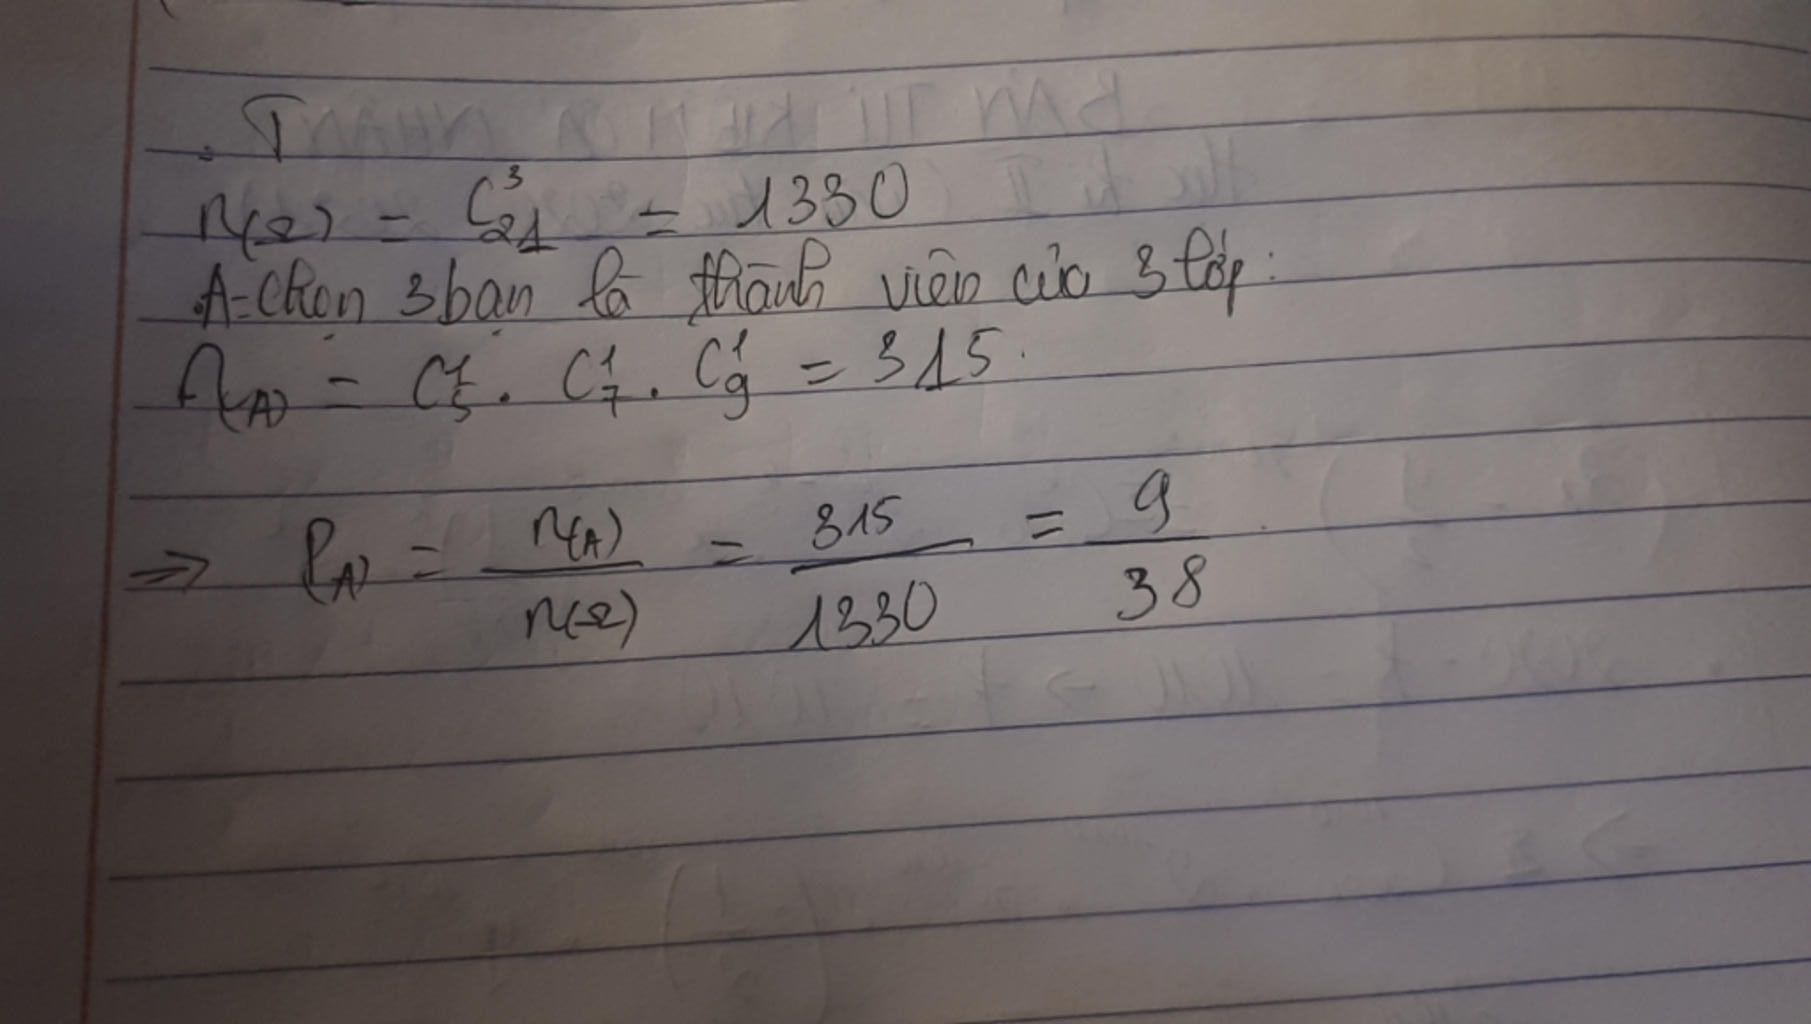 T
n(Ω) = C³₂₁ = 1330
A = Chọn 3 bạn là thành viên của 3 lớp:
n(A) = C¹₅ . C¹₇ . C¹₉ = 315.
⇒ P(A) = n(A)/n(Ω) = 315/1330 = 9/38.